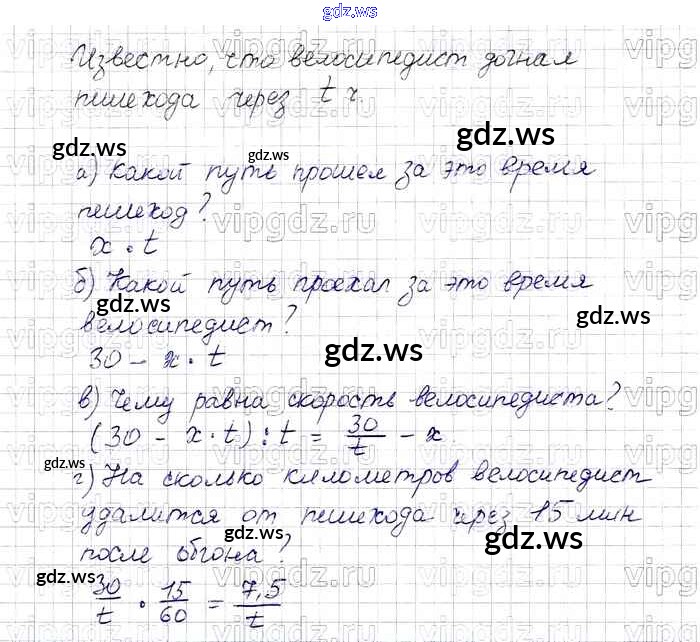 gdz.ws
Известно, что велосипедист догнал
пешехода через t ч.
gdz.ws
gdz.ws
gdz.ws
а) Какой путь прошел за это время
пешеход?
x · t
б) Какой путь проехал за это время
gdz.ws
gdz.ws
велосипедист?
30 - x · t
gdz.ws
в) Чему равна скорость велосипедиста?
(30 - x · t) : t = 30/t - x.
gdz.ws
г) На сколько километров велосипедист
удалится от пешехода через 15 мин
gdz.ws
gdz.ws
после обгона?
gdz.ws
30/t · 15/60 = 7,5/t
gdz.ws
gdz.ws
vipgdz.ru